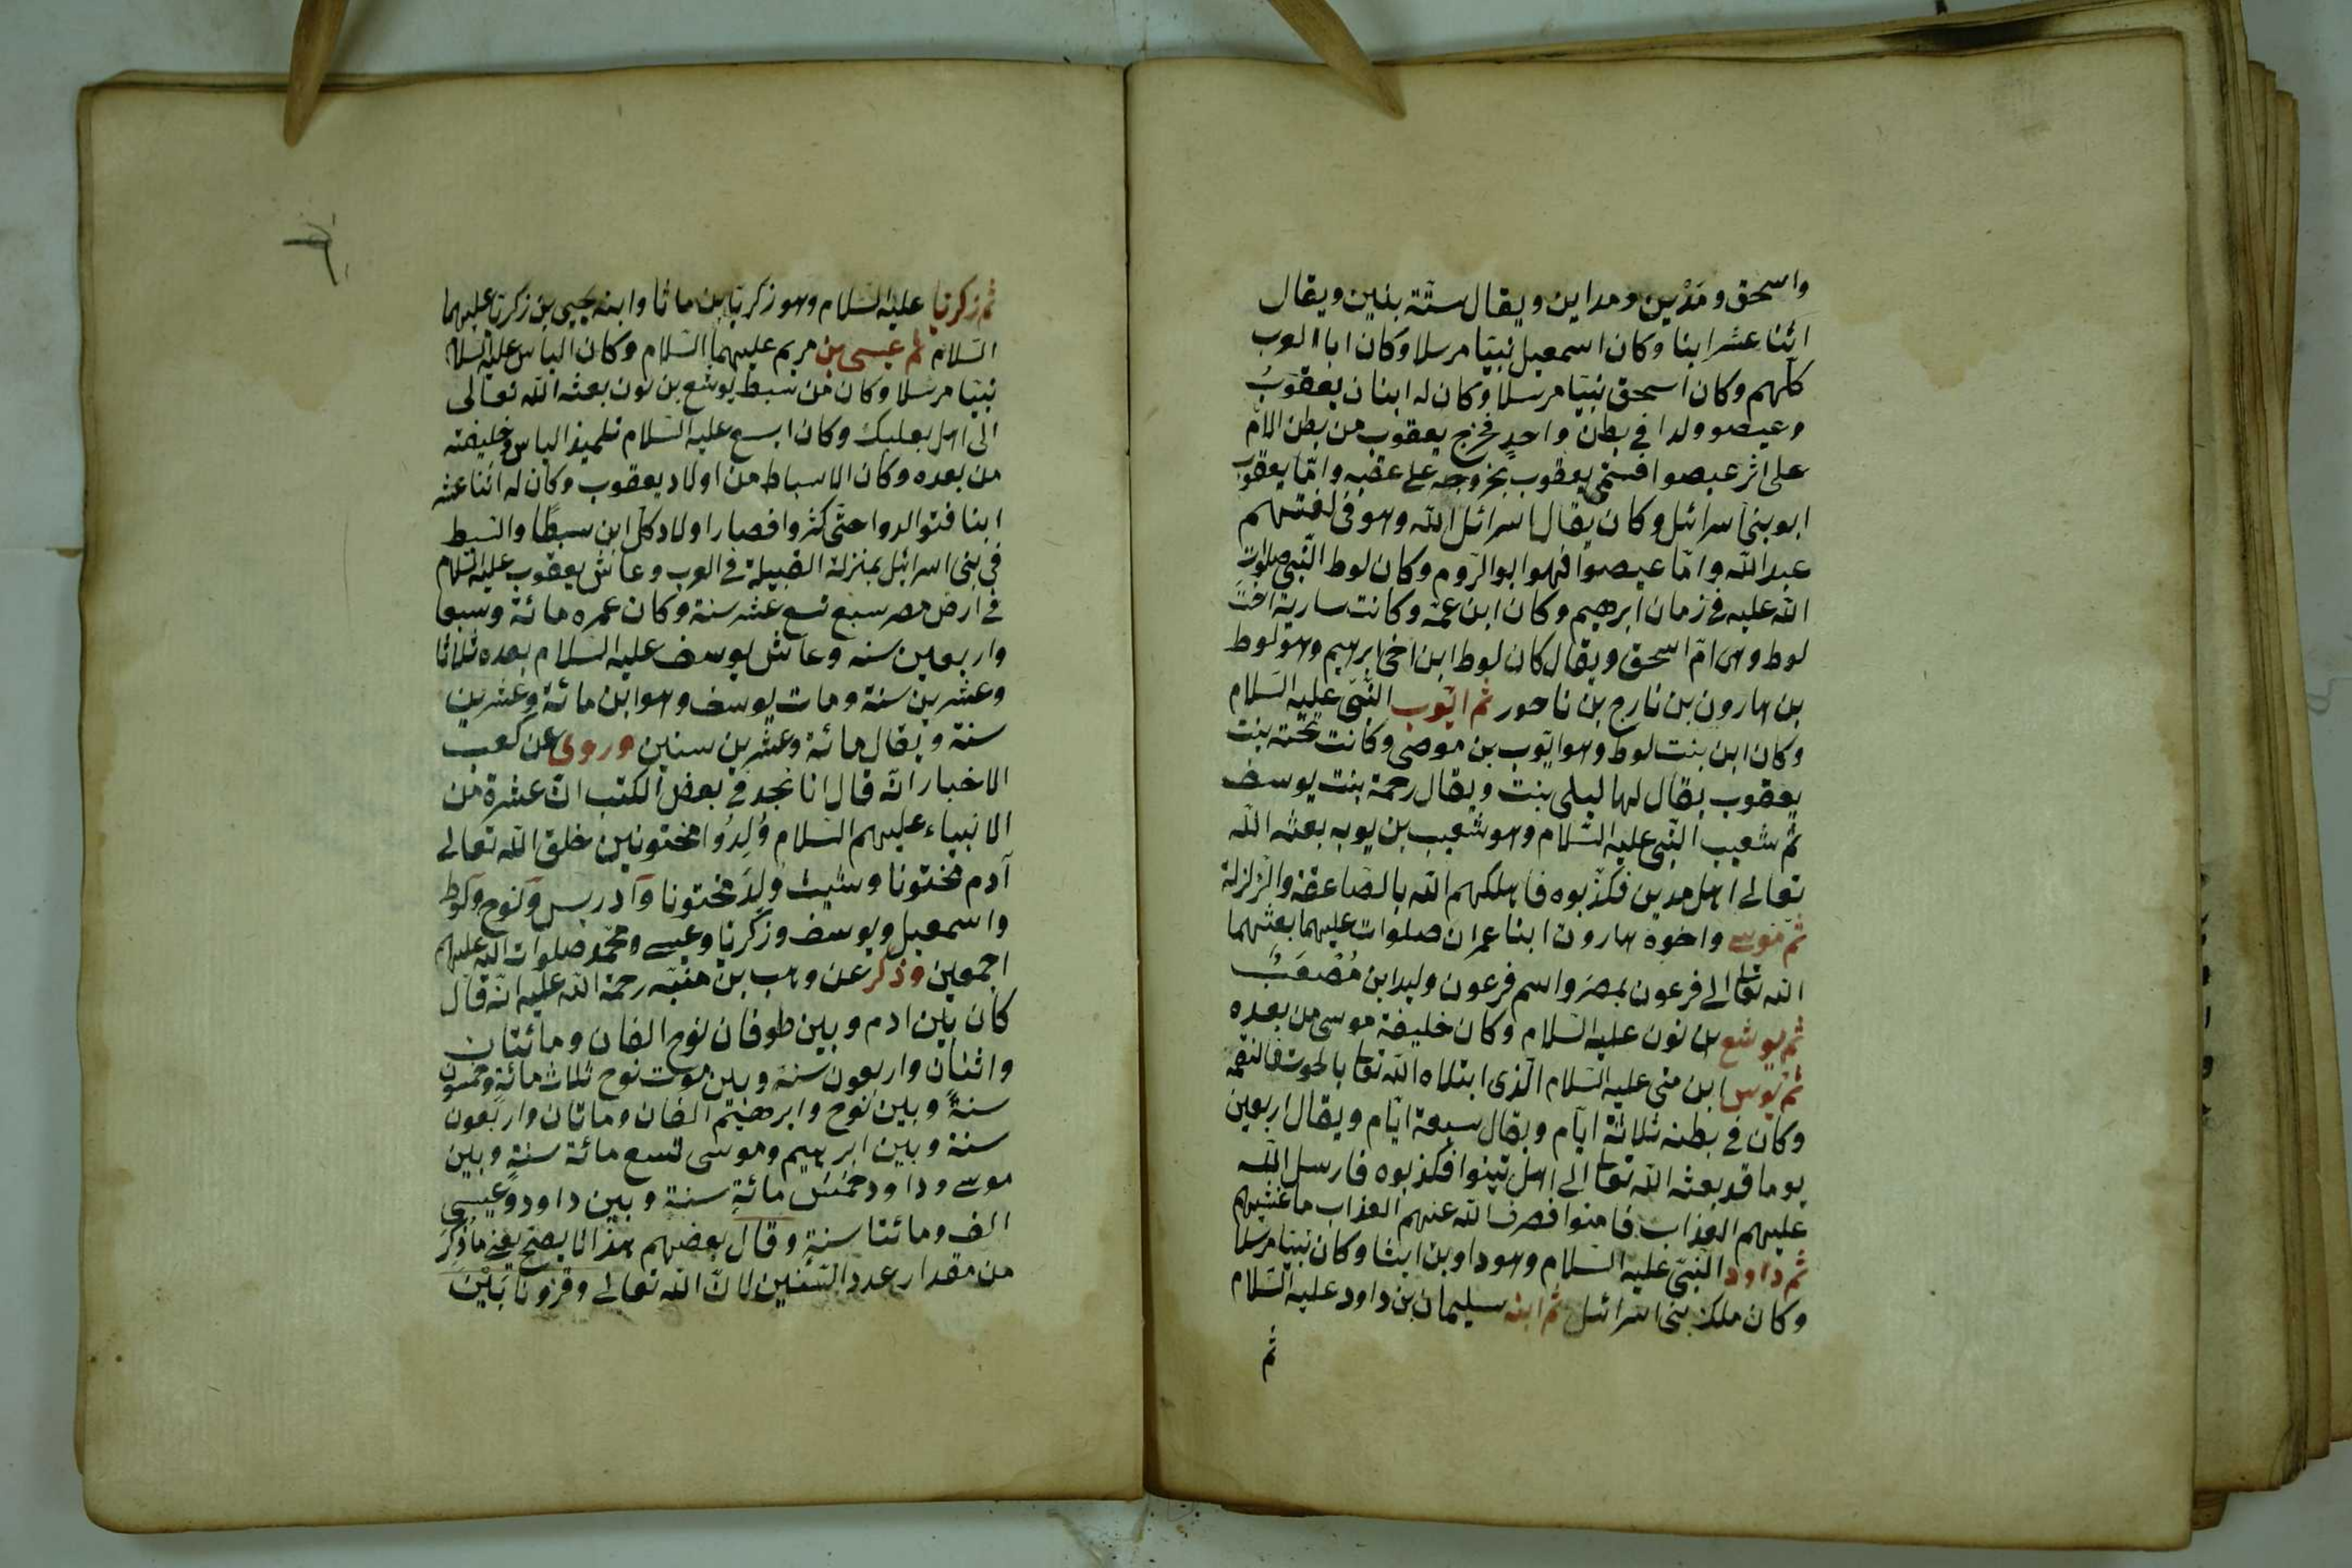 واسحق ومَدْيَن ومداين ويقال ستّة بنين ويقال
اثنا عشر ابنا وكان اسمعيل نبيّا مرسلا وكان ابا العرب
كلّهم وكان اسحق نبيّا مرسلا وكان له ابنان يعقوب
وعيصو ولدا في بطن واحدٍ فخرج يعقوب من بطن الامّ
على اثر عيصو افسمّى يعقوب بخروجه على عقبه وامّا يعقوب
ابو بنى اسرائل وكان يقال اسرائل الله وهو فى لغتهم
عبد الله وامّا عيصوا فهوا بو الرّوم وكان لوط النّبى صلوات
الله عليه في زمان ابرهيم وكان ابن عمّه وكانت سارية اخت
لوط وهى امّ اسحق ويقال كان لوط ابن اخى ابرهيم وهو لوط
بن هارون بن تارح بن ناحور ثم ايّوب النّبىّ عليه السّلام
وكان ابن بنت لوط وهو ايّوب بن موصى وكانت تحته بنت
يعقوب يقال لها ليلى بنت ويقال رحمة بنت يوسف
ثمّ شعيب النّبى عليه السّلام وهو شعيب بن يوبه بعثه الله
تعالى اهل مدين فكذّبوه فاهلكهم الله بالصّاعقة والزّلزلة
ثمّ موسى واخوه هارون ابنا عمران صلوات عليهما بعثهما
الله تعالى الى فرعون بمصر واسم فرعون وليد ابن مُصْعَبْ
ثمّ يوشع بن نون عليه السّلام وكان خليفة موسى من بعده
ثمّ يونس ابن متى عليه السّلام الّذى ابتلاه الله تعا بالحوت فالتقمه
وكان في بطنه ثلاثة ايّام ويقال سبعة ايّام ويقال اربعين
يوما قد بعثه الله تعا الى اهل نينوا فكذبوه فارسل الله
عليهم العذاب فامنوا فصرف الله عنهم العذاب ما غشيهم
ثم داود النّبىّ عليه السّلام وهو داود بن ايشا وكان نبيّا مرسلا
وكان ملك بنى اسرائل ثم ابنه سليمان بن داود عليه السّلام
ثم
ثم زكريّا عليه السّلام وهو زكريّا بن ماثا وابنه يحيى بن زكريّا عليهما
السّلام ثم عيسى بن مريم عليهما السّلام وكان الياس عليه السّلام
نبيّا مرسلا وكان من سبط يوشع بن نون بعثه الله تعالى
الى اهل بعلبك وكان ايسع عليه السّلام تلميذ الياس وخليفته
من بعده وكان الاسباط من اولاد يعقوب وكان له اثنا عشر
ابنا فتوالدوا حتّى كثروا فصار اولاد كل ابن سبطًا والسّبط
في بنى اسرائل بمنزلة القبيلة في العرب وعاش يعقوب عليه السّلام
في ارض مصر سبع تسع عشر سنة وكان عمره مائة وسبعا
واربعين سنه وعاش يوسف عليه السّلام بعده ثلاثا
وعشرين سنة ومات يوسف وهو ابن مائة وعشرين
سنة ويقال مائة وعشرين سنين وروى عن كعب
الاخبار انّه قال انا نجد في بعض الكتب انّ عشرة من
الانبياء عليهم السّلام وُلِدُوا مختونين خلق الله تعالى
آدم مختونا وشيث وُلِدَ مختونا وادريس ونوح ولوط
واسمعيل ويوسف وزكريّا وعيسى ومحمّد صلوات الله عليهم
اجمعين وذكر عن وهب بن منبّه رحمة الله عليه انّه قال
كان بين ادم وبين طوفان نوح الفان ومائتان
واثنان واربعون سنة وبين موت نوح ثلاث مائةٍ وخمسون
سنةً وبين نوح وابرهيم الفان وماتان واربعون
سنة وبين ابرهيم وموسى تسع مائة سنةٍ وبين
موسى وداود خمس مائةٍ سنة وبين داود وعيسى
الف ومائتا سنةٍ وقال بعضهم هذا لا يصحّ يعنى ما ذُكِرَ
من مقدار عدد السّنين لانّ الله تعالى وقرونا بَيْنَ